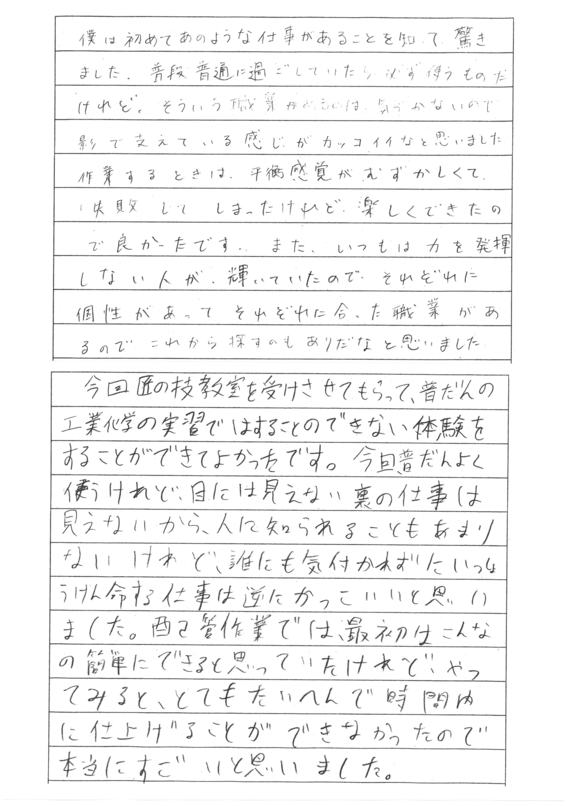 僕は初めてあのような仕事があることを知って、驚き
ました。普段普通に過ごしていたら必ず使うものだ
けれど、そういう職業がないのは、気づかないので
影で支えている感じがカッコイイなと思いました
作業するときは、平衡感覚がむずかしくて、
失敗してしまったけれど、楽しくできたの
で良かったです。また、いつもは力を発揮
しない人が、輝いていたので、それぞれに
個性があってそれぞれに合った職業があ
るのでこれから探すのもありだなと思いました
今回匠の技教室を受けさせてもらって、普だんの
工業化学の実習ではすることのできない体験を
することができてよかったです。今回普だんよく
使うけれど、目には見えない裏の仕事は
見えないから、人に知られることもあまり
ないけれど、誰にも気付かれずにいっしょ
うけん命する仕事は逆にかっこいいと思い
ました。配管作業では、最初はこんな
の簡単にできると思っていたけれど、やっ
てみると、とてもたいへんで時間内
に仕上げることができなかったので
本当にすごいと思いました。